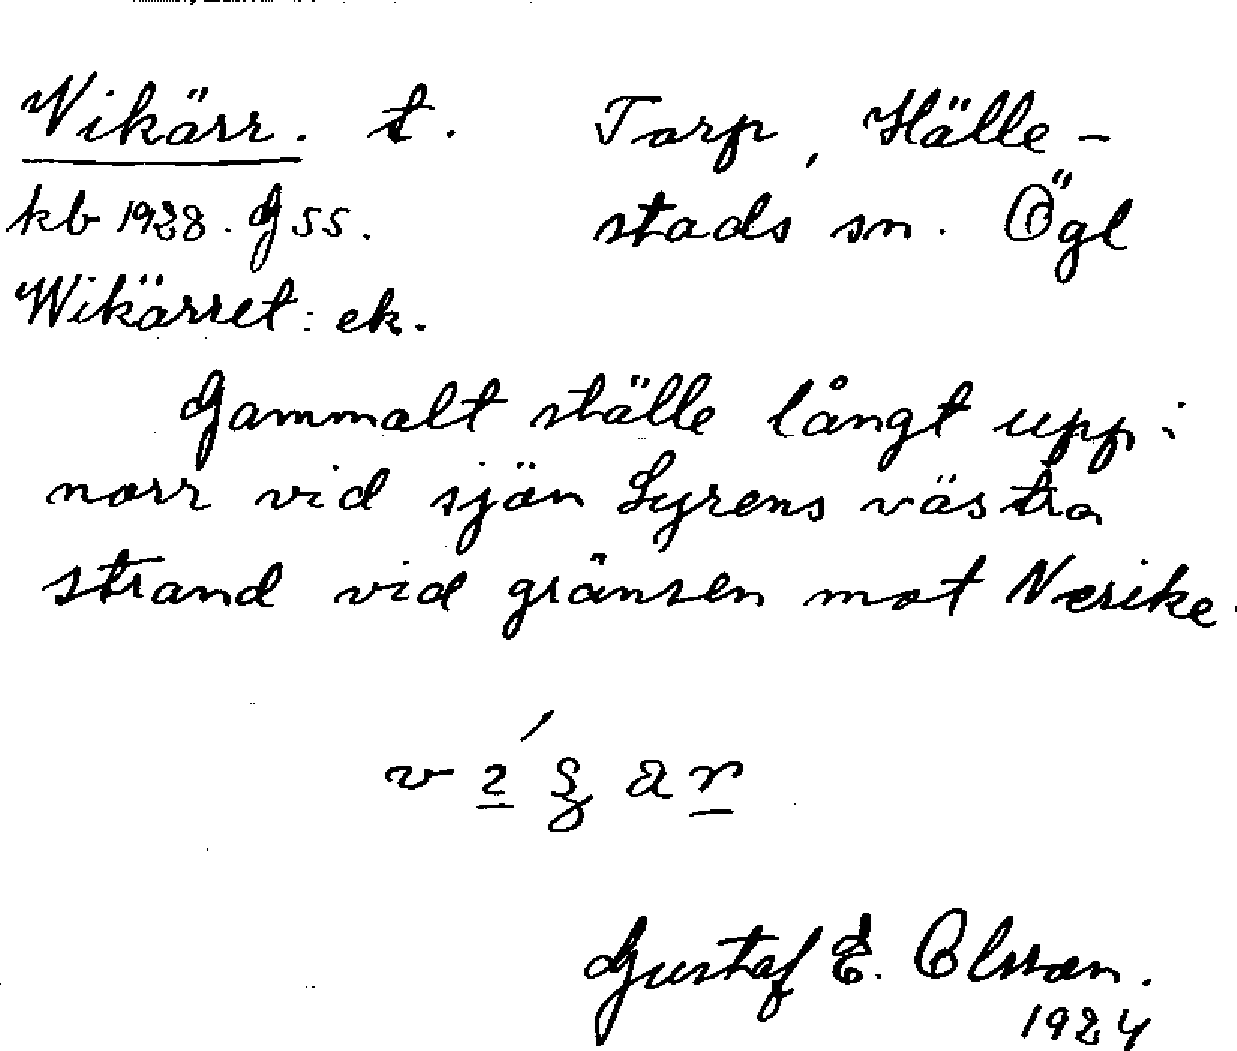 Vikärr. t. Torp, Hälle-
kb 1928. G 55. stads sn. Ögl
Wikärret: ek.
Gammalt ställe långt upp i
norr vid sjön Lyrens västra
strand vid gränsen mot Nerike.
Gustaf E. Olsson.
1924